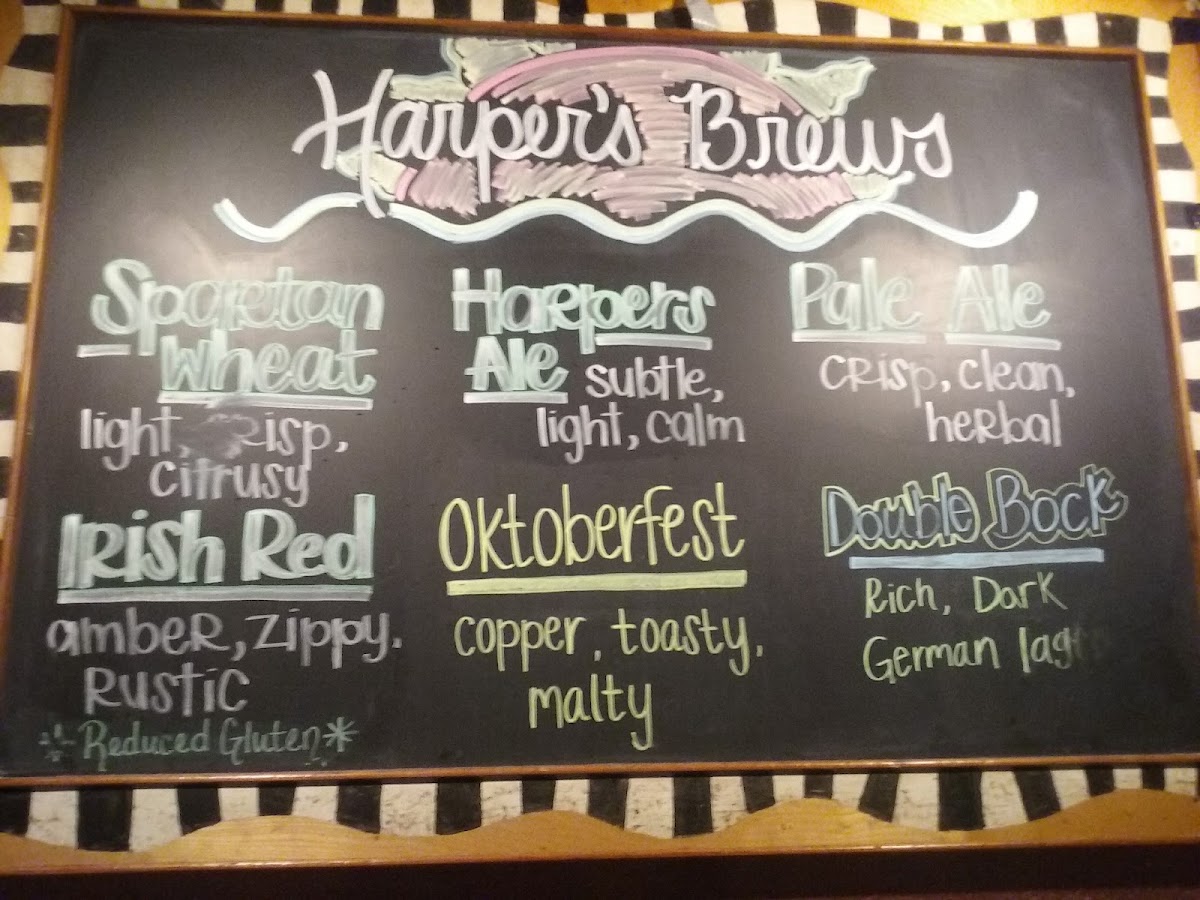 Harper's Brews
Spartan
Wheat
light, crisp,
citrusy
Harpers
Ale subtle,
light, calm
Pale Ale
crisp, clean,
herbal
Irish Red
amber, zippy,
Rustic
Reduced Gluten
Oktoberfest
copper, toasty,
malty
Double Bock
Rich, Dark
German lager